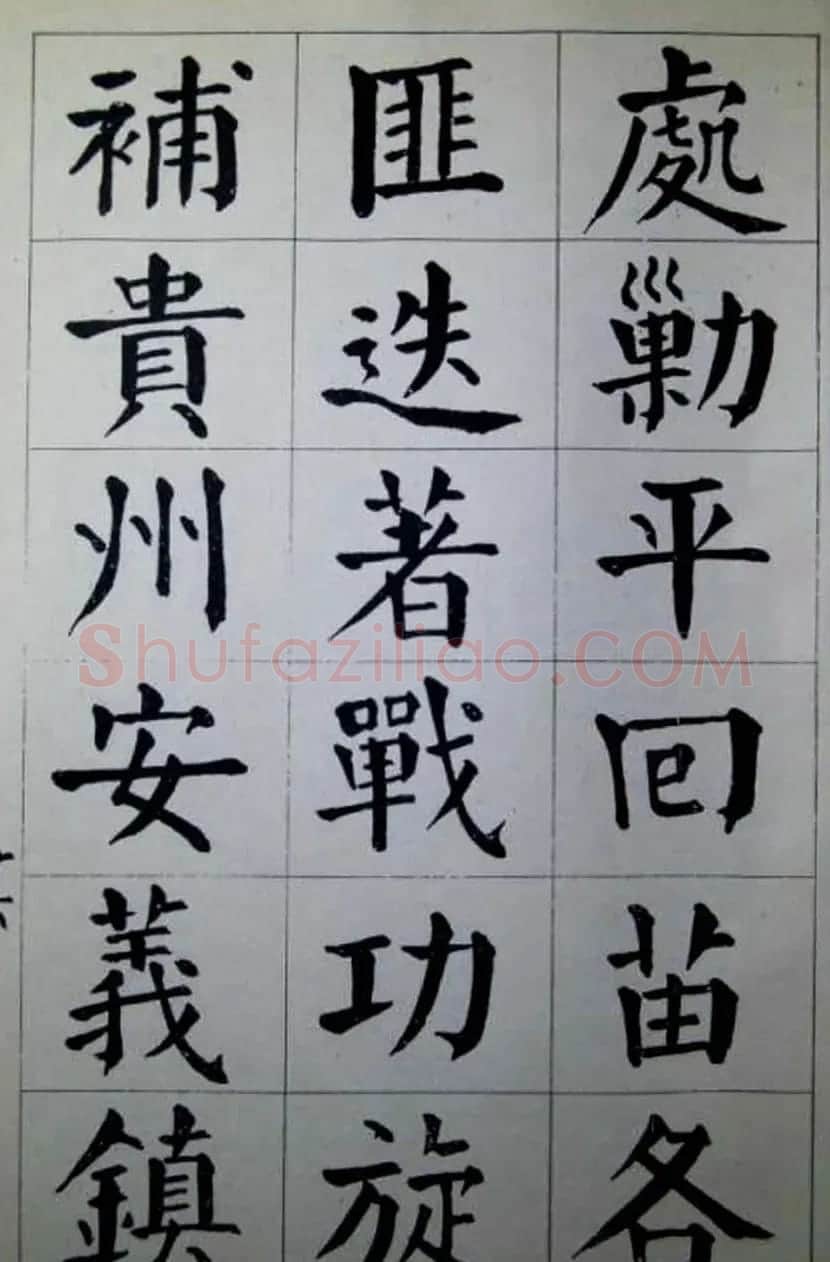 處勦平回苗各
匪迭著戰功旋
補貴州安義鎮
Shufaziliao.COM